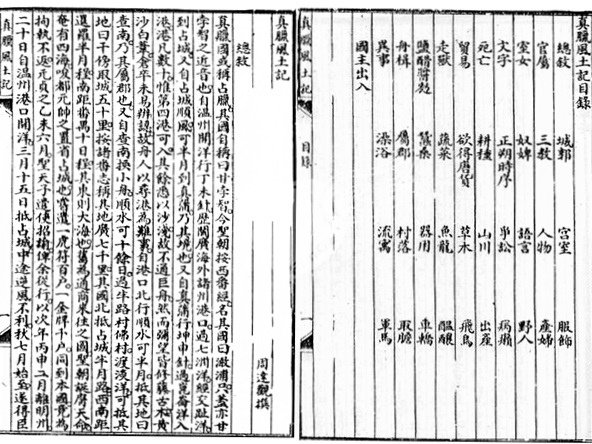 真臘風土記目錄
總敘 城郭 宮室 服飾
官屬 三教 人物 產婦
室女 奴婢 語言 野人
文字 正朔時序 爭訟 病癩
死亡 耕種 山川 出產
貿易 欲得唐貨 草木 飛鳥
走獸 蔬菜 魚龍 醞釀
鹽醋醬麴 蠶桑 器用 車轎
舟楫 屬郡 村落 取膽
異事 澡浴 流寓 軍馬
國主出入
真臘風土記 目錄
真臘風土記
周達觀撰
總敘
真臘國或稱占臘其國自稱曰甘孛智今聖朝按西番經名其國曰澉浦只蓋亦甘
孛智之近音也自溫州開洋行丁未針歷閩廣海外諸州港口過七洲洋經交趾洋
到占城又自占城順風可半月到真蒲乃其境也又自真蒲行坤申針過崑崙洋入
港港凡數十惟第四港可入其餘悉以沙淺故不通巨舟然而彌望皆修籐古木黃
沙白葦倉卒未易辨認故舟人以尋港為難事自港口北行順水可半月抵其地曰
查南乃其屬郡也又自查南換小舟順水可十餘日過半路村佛村渡淡洋可抵其
地曰干傍取城五十里按諸番志稱其地廣七千里其國北抵占城半月路西南距
暹羅半月程南距番禺十日程其東則大海也舊為通商來往之國聖朝誕膺天命
奄有四海唆都元帥之置省占城也嘗遣一虎符百戶一金牌千戶同到本國竟為
拘執不返元貞之乙未六月聖天子遣使招諭俾余從行以次年丙申二月離明州
二十日自溫州港口開洋三月十五日抵占城中途逆風不利秋七月始至遂得臣
真臘風土記